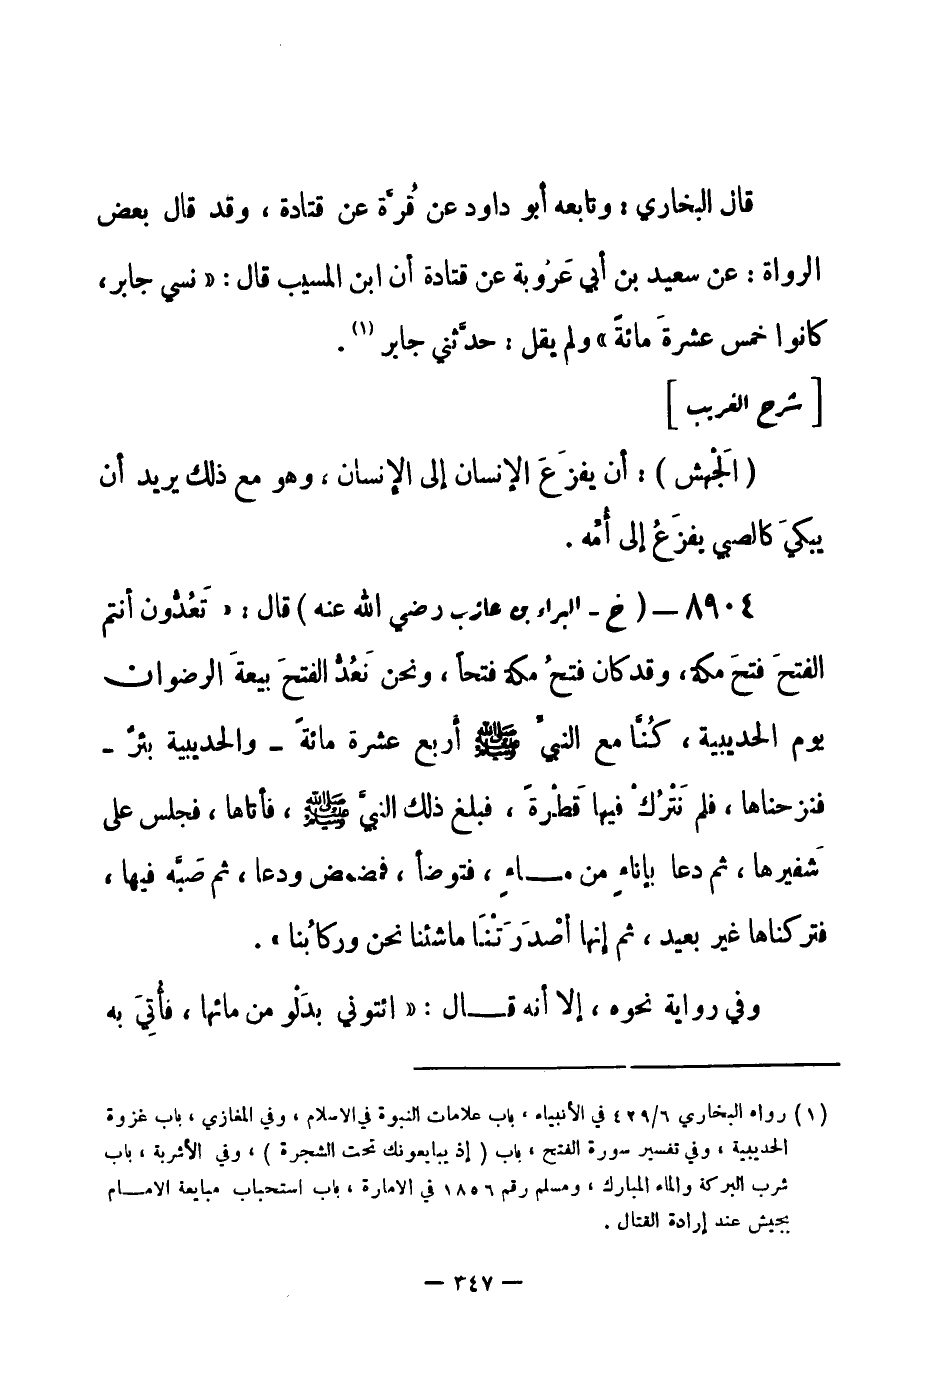 قال البخاري : وتابعه أبو داود عن قُرَّة عن قتادة ، وقد قال بعض
الرواة : عن سعيد بن أبي عَرُوبة عن قتادة أن ابن المسيب قال : « نسي جابر ،
كانوا خمس عشرةَ مائةً » ولم يقل : حدَّثني جابر (١) .
[ شرح الغريب ]
( الجَهْش ) : أن يفزَعَ الإنسان إلى الإنسان ، وهو مع ذلك يريد أن
يبكيَ كالصبي يفزَعُ إلى أُمِّه .
٨٩٠٤ – ( خ - البراء بن عازب رضي الله عنه ) قال : « تَعُدُّون أنتم
الفتحَ فتحَ مكة ، وقد كان فتحُ مكة فتحاً ، ونحن نَعُدُّ الفتحَ بيعةَ الرضوان
يوم الحديبية ، كُنَّا مع النبيِّ ﷺ أربع عشرة مائةً - والحديبية بئرٌ -
فنزحناها ، فلم نَتْرُكْ فيها قَطْرةً ، فبلغ ذلك النبيَّ ﷺ ، فأتاها ، فجلس على
شَفيرها ، ثم دعا بإناءٍ من مـاءٍ ، فتوضأ ، فمضمض ودعا ، ثم صَبَّه فيها ،
فتركناها غير بعيد ، ثم إنها أصْدَرَتْنَا ماشئنا نحن وركابُنا » .
وفي رواية نحوه ، إلا أنه قـال : « ائتوني بدَلْو من مائها ، فأُتِيَ به
(١) رواه البخاري ٤٢٩/٦ في الأنبياء ، باب علامات النبوة في الاسلام ، وفي المغازي ، باب غزوة
الحديبية ، وفي تفسير سورة الفتح ، باب ( إذ يبايعونك تحت الشجرة ) ، وفي الأشربة ، باب
شرب البركة والماء المبارك ، ومسلم رقم ١٨٥٦ في الامارة ، باب استحباب مبايعة الامـام
الجيش عند إرادة القتال .
– ٣٤٧ –